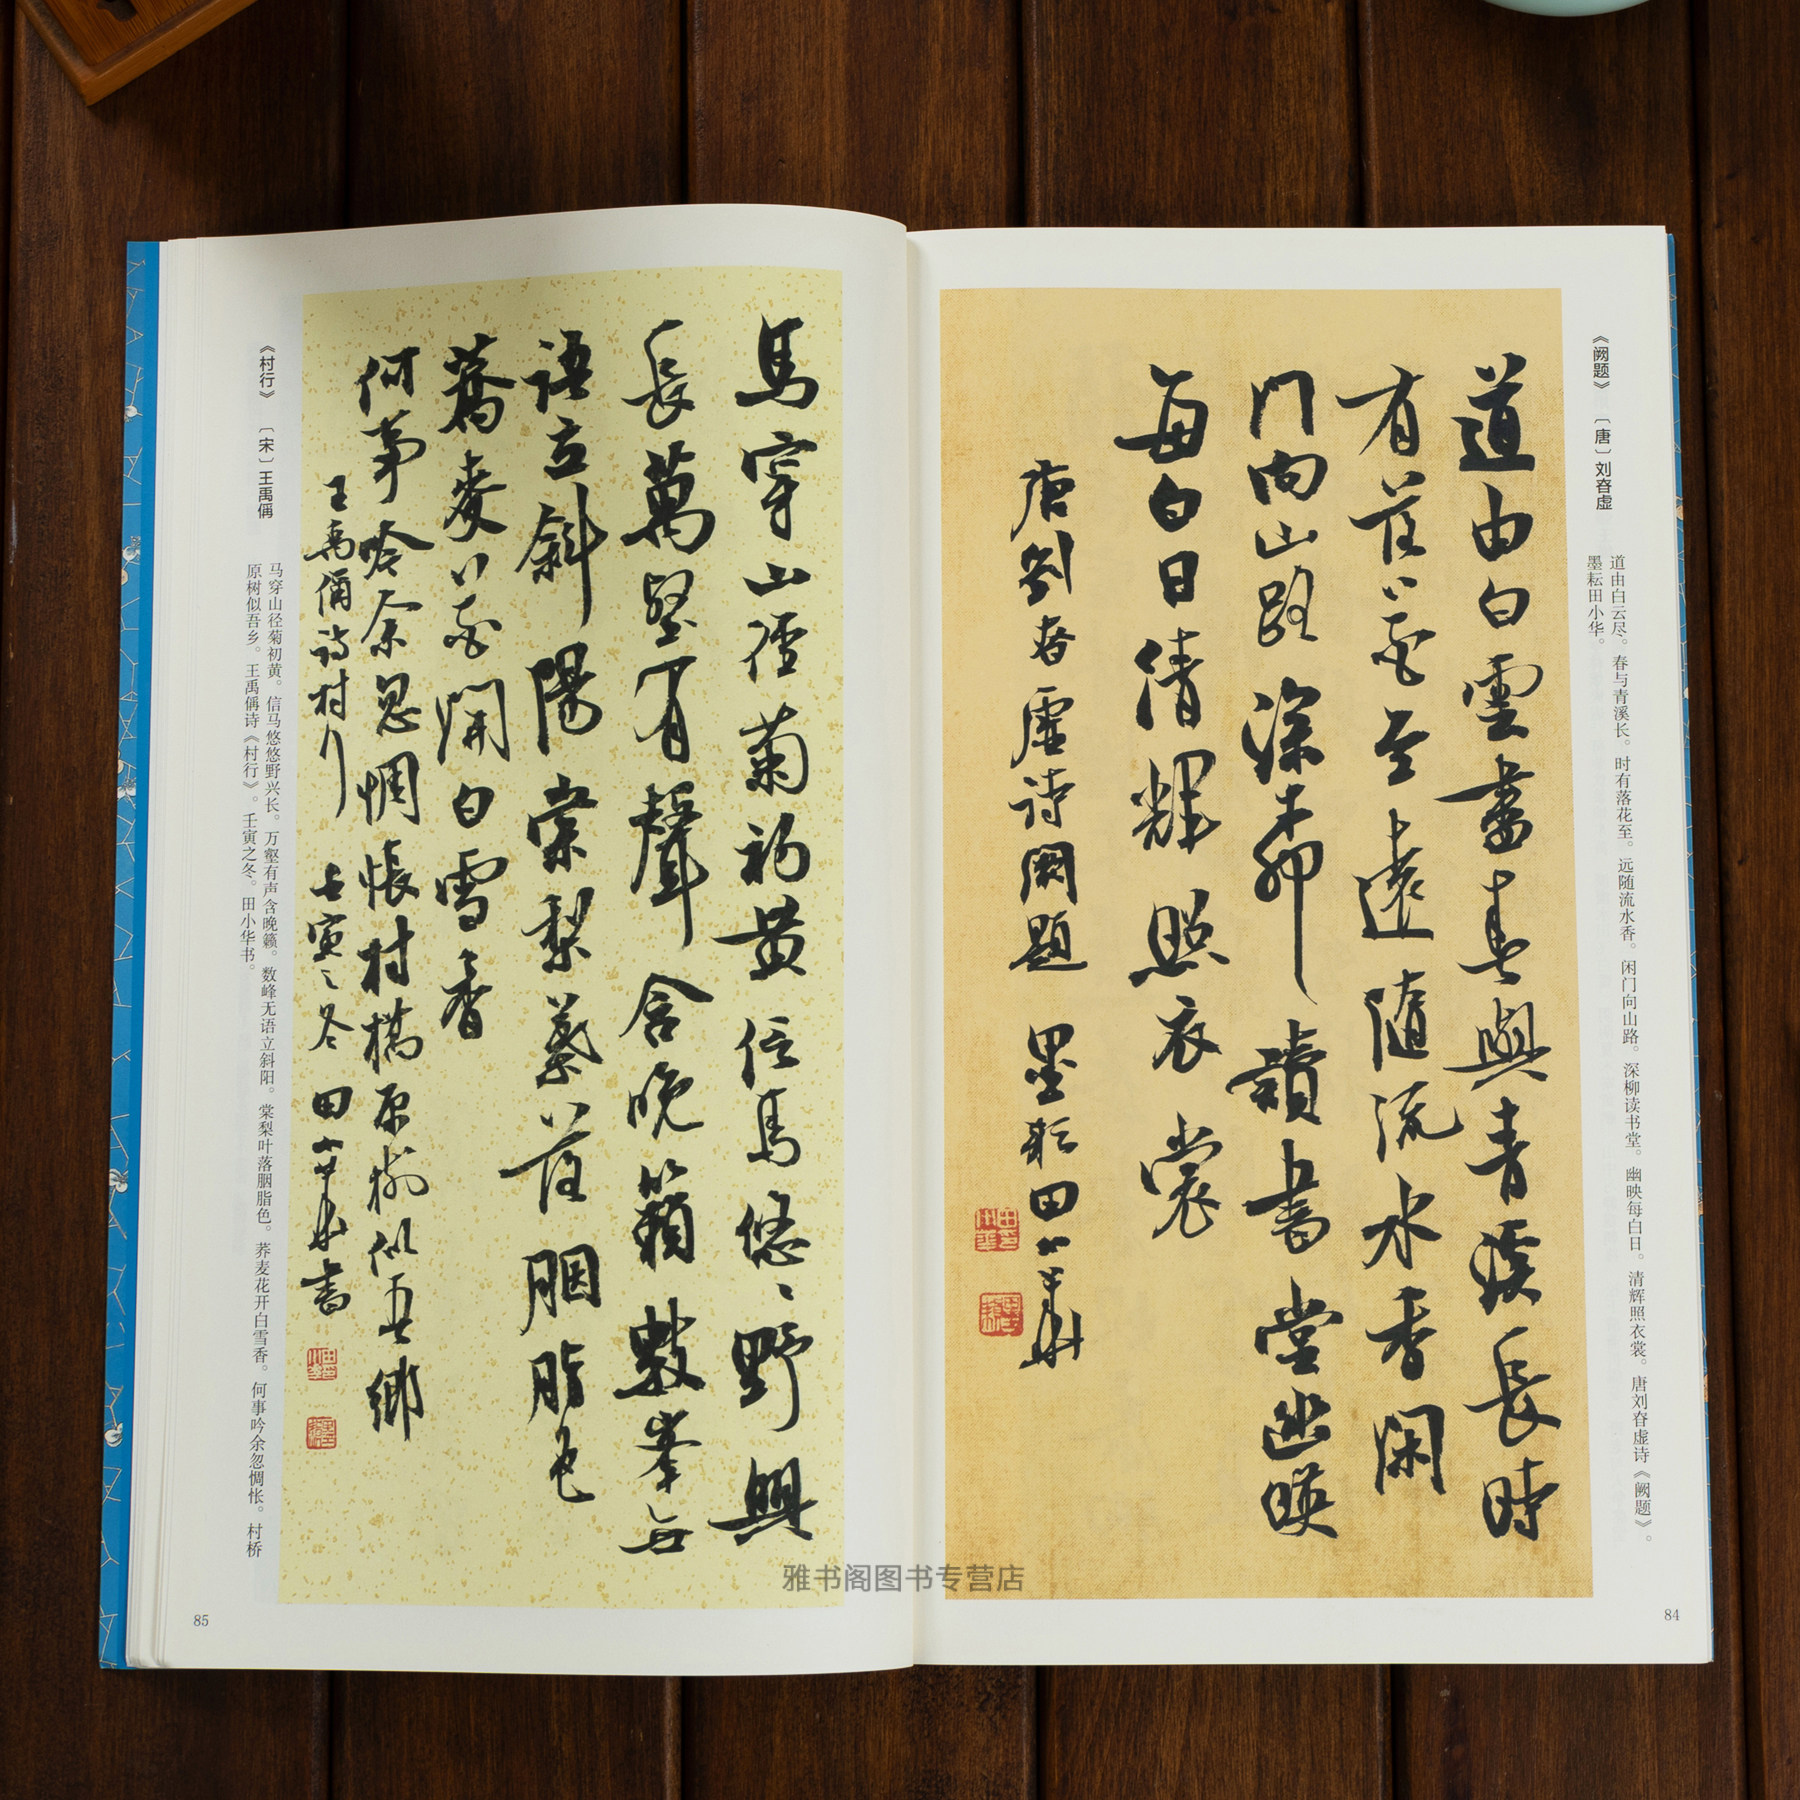 《阙题》 〔唐〕刘眘虚
道由白云尽。春与青溪长。时有落花至。远随流水香。闲门向山路。深柳读书堂。幽映每白日。清辉照衣裳。唐刘眘虚诗《阙题》。
墨耘田小华。
道由白雲盡春與青溪長時
有落花至遠隨流水香閑
门向山路深柳讀書堂幽映
每白日清輝照衣裳
唐劉眘虛诗闕題 墨耘田小華
84
馬穿山徑菊初黄信馬悠〻野興
長萬壑有聲含晚籟數峯无
语立斜陽棠梨葉落胭脂色
蕎麥花開白雪香
何事吟余忽惆悵村橋原樹似吾鄉
王禹偁诗村行 壬寅之冬 田小华書
《村行》 〔宋〕王禹偁
马穿山径菊初黄。信马悠悠野兴长。万壑有声含晚籁。数峰无语立斜阳。棠梨叶落胭脂色。荞麦花开白雪香。何事吟余忽惆怅。村桥
原树似吾乡。王禹偁诗《村行》。壬寅之冬。田小华书。
85
雅书阁图书专营店